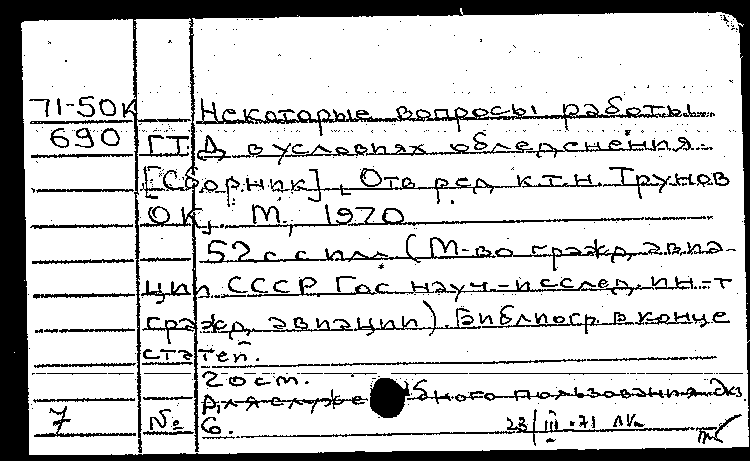 71-50к Некоторые вопросы работы
690 ГТД в условиях обледенения.
[Сборник]. Отв ред. к.т.н. Трунов
О К, М., 1970
52 с с илл (М-во гражд. авиа-
ции СССР Гос науч-исслед. ин-т
гражд. авиации). Библиогр в конце
статей.
20 ст.
Для служебного пользования экз
7 № 6. 23/III-71